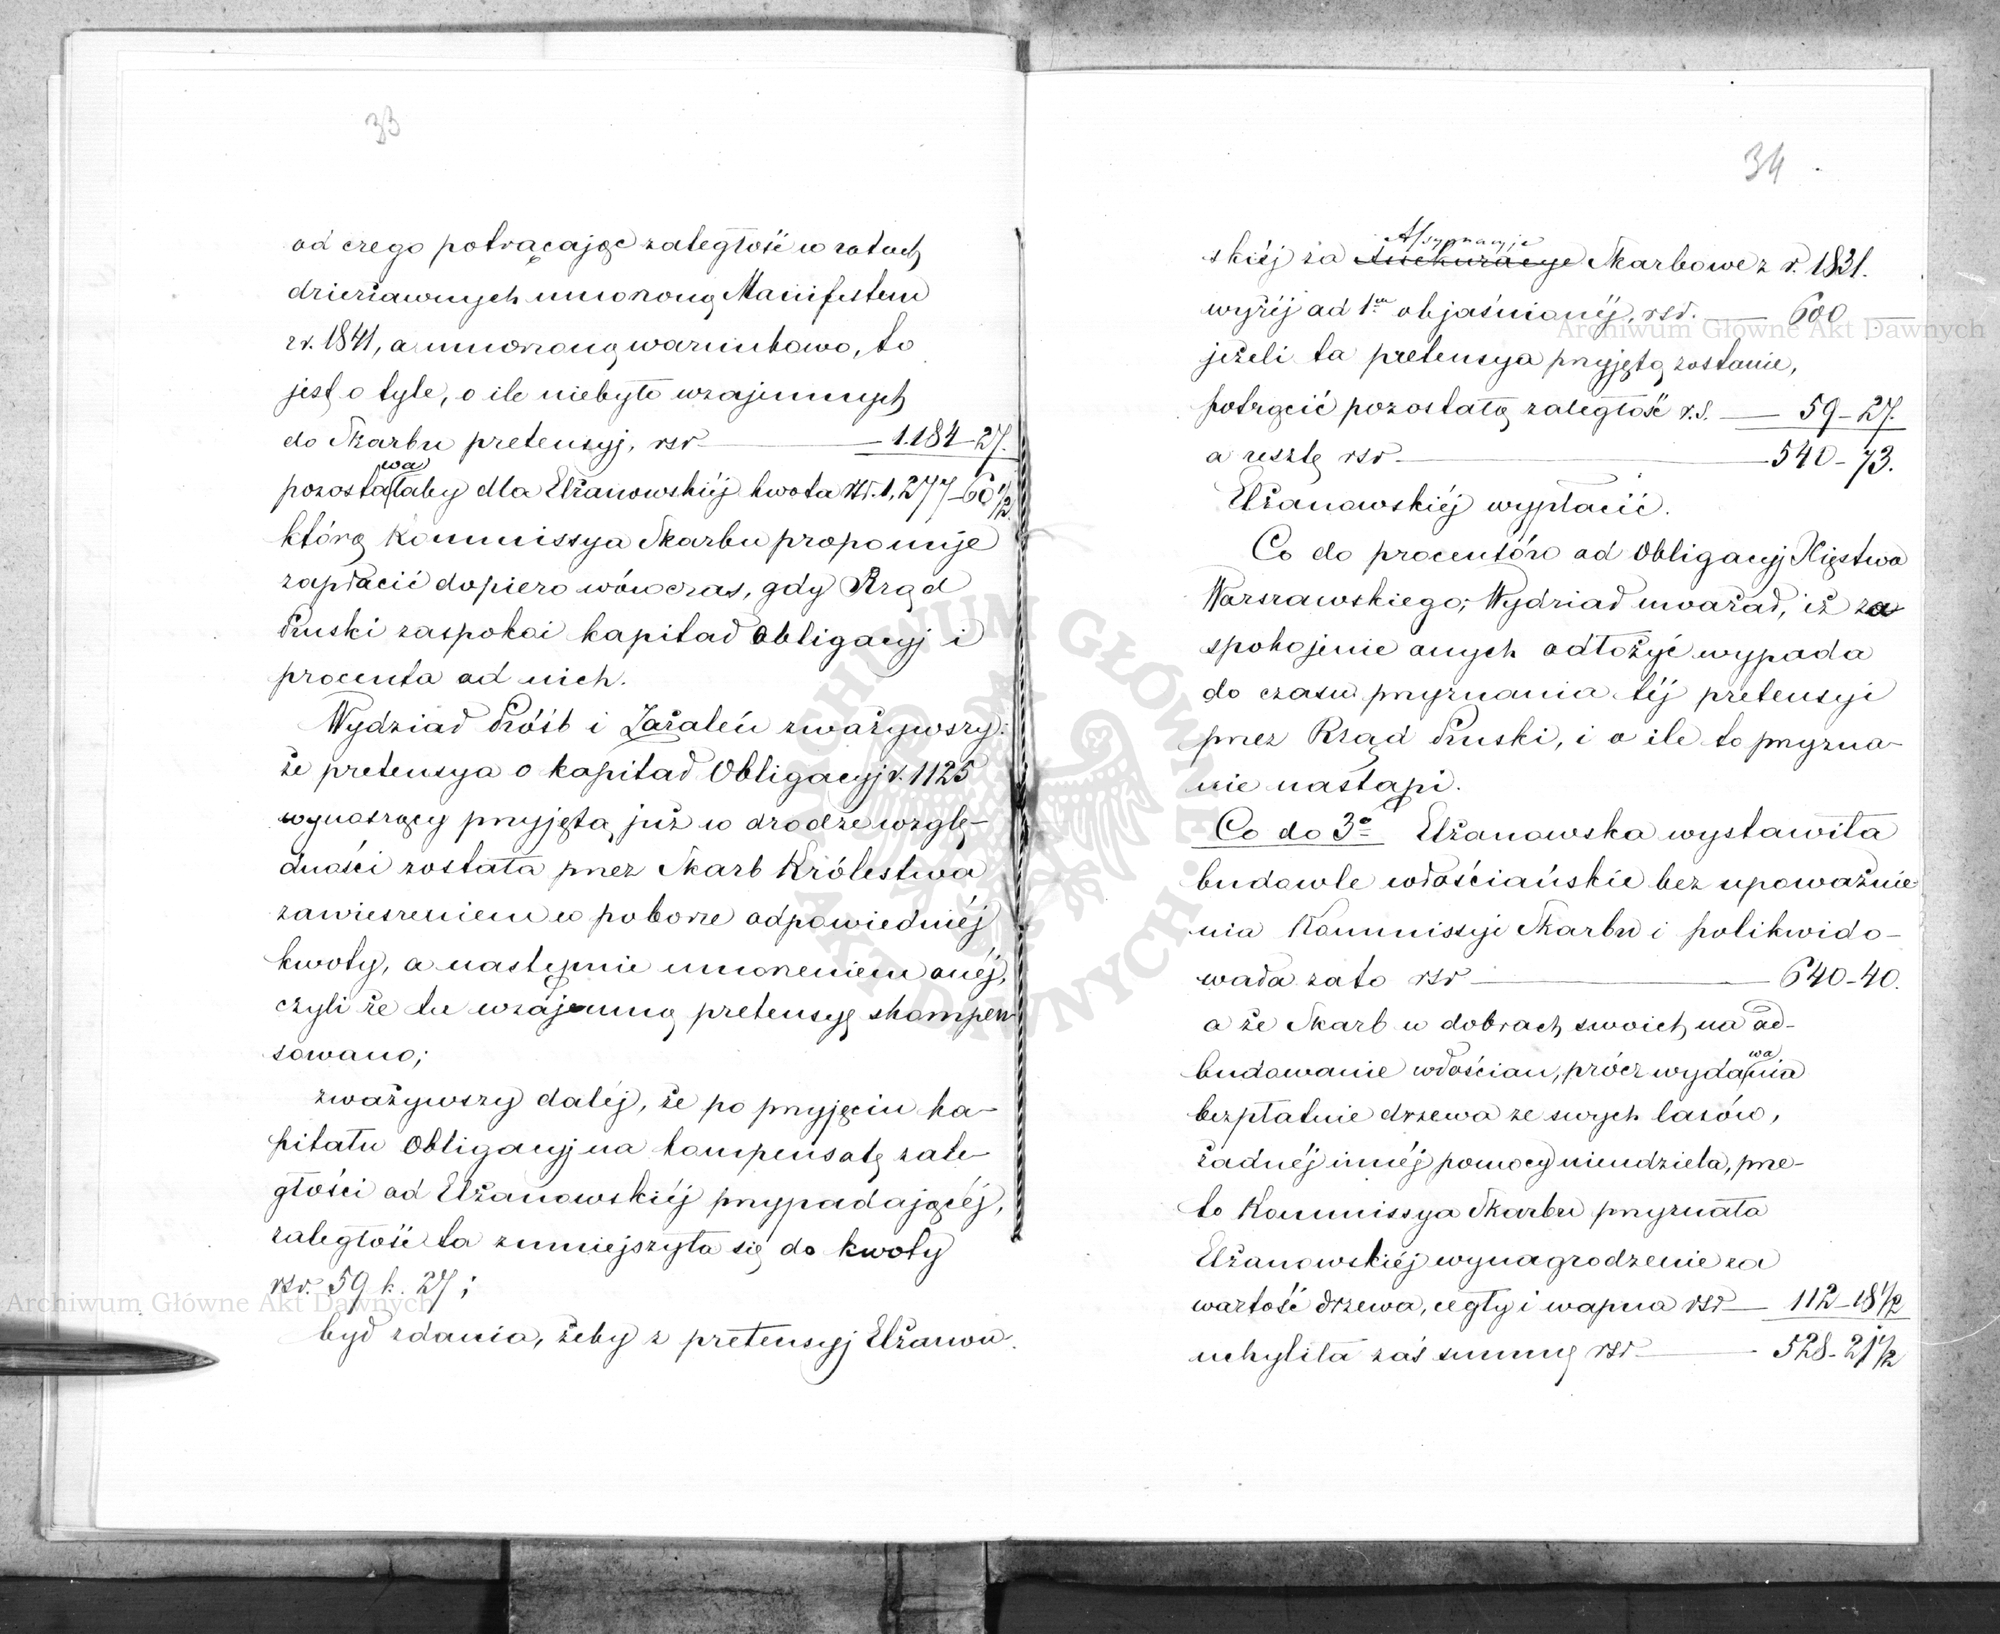 33
od czego potrącając zaległość w ratach
dzierżawnych umorzoną Manifestem
z r. 1841, a umorzoną warunkowo, to
jest o tyle, o ile niebyło wzajemnych
do Skarbu pretensyj, rsr — 1.184-27.
pozostawałaby dla Elżanowskiéj kwota rsr. 1,277-60 1/2.
którą Kommissya Skarbu proponuje
zapłacić dopiero wówczas, gdy Rząd
Pruski zaspokoi kapitał obligacyj i
procenta od nich.
Wydział Próśb i Zażaleń zważywszy:
że pretensya o kapitał Obligacyj r. 1125
wynoszący przyjętą już w drodze wzglę-
dności została przez Skarb Królestwa
zawieszeniem w poborze odpowiedniéj
kwoty, a następnie umorzeniem onéj,
czyli że tu wzajemną pretensyę skompen
sowano;
zważywszy daléj, że po przyjęciu ka-
pitału Obligacyj na kompensatę zale-
głości od Elżanowskiéj przypadającéj,
zaległość ta zmniejszyła się do kwoty
rsr. 59 k. 27;
był zdania, żeby z pretensyj Elżanow-
34
skiéj za Assygnacyje Skarbowe z r. 1831.
wyżéj ad 1m objaśnionéj, rsr. — 600 —
jeżeli ta pretensya przyjętą zostanie,
potrącić pozostałą zaległość r.s. — 59-27.
a resztę rsr — 540-73.
Elżanowskiéj wypłacić.
Co do procentów od Obligacyj Xięstwa
Warszawskiego; Wydział uważał, iż za
spokojenie onych odłożyć wypada
do czasu przyznania téj pretensyi
przez Rząd Pruski, i o ile to przyzna-
nie nastąpi.
Co do 3o Elżanowska wystawiła
budowle włościańskie bez upoważnie
nia Kommissyi Skarbu i polikwido-
wała za to rsr — 640-40.
a że Skarb w dobrach swoich na od-
budowanie włościan, prócz wydawania
bezpłatnie drzewa ze swych lasów,
żadnéj innéj pomocy nieudziela, prze-
to Kommissya Skarbu przyznała
Elżanowskiéj wynagrodzenie za
wartość drzewa, cegły i wapna rsr — 112-18 1/2
uchyliła zaś summę rsr — 528-21 1/2
Archiwum Główne Akt Dawnych
Archiwum Główne Akt Dawnych
ARCHIWUM GŁÓWNE AKT DAWNYCH